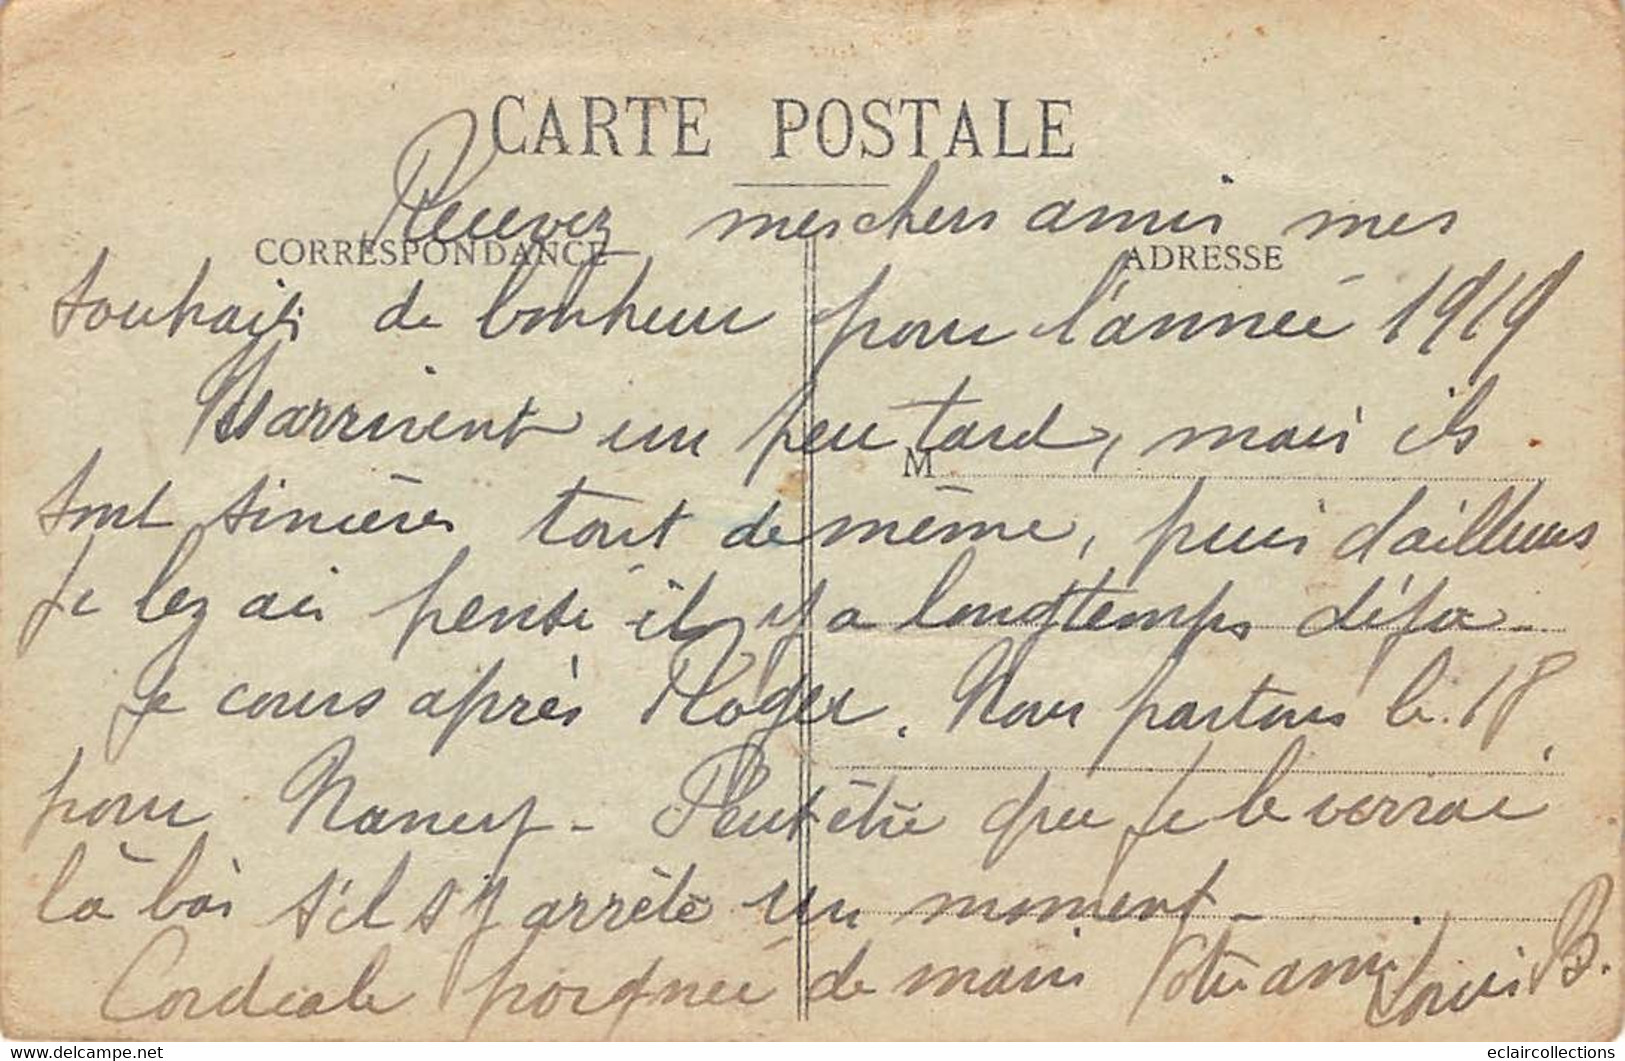 CARTE POSTALE
Recevez mes chers amis mes
CORRESPONDANCE
ADRESSE
souhaits de bonheur pour l'année 1919
Ils arrivent un peu tard, mais ils
M
sont sincères tout de même, puis d'ailleurs
Je les ai pensé il y a longtemps déjà -
Je cours après Roger. Nous partons le 18
pour Nancy - Peut être que je le verrai
là bas s'il s'y arrête un moment -
Cordiale poignée de main Votre ami Louis B.
eclaircollections